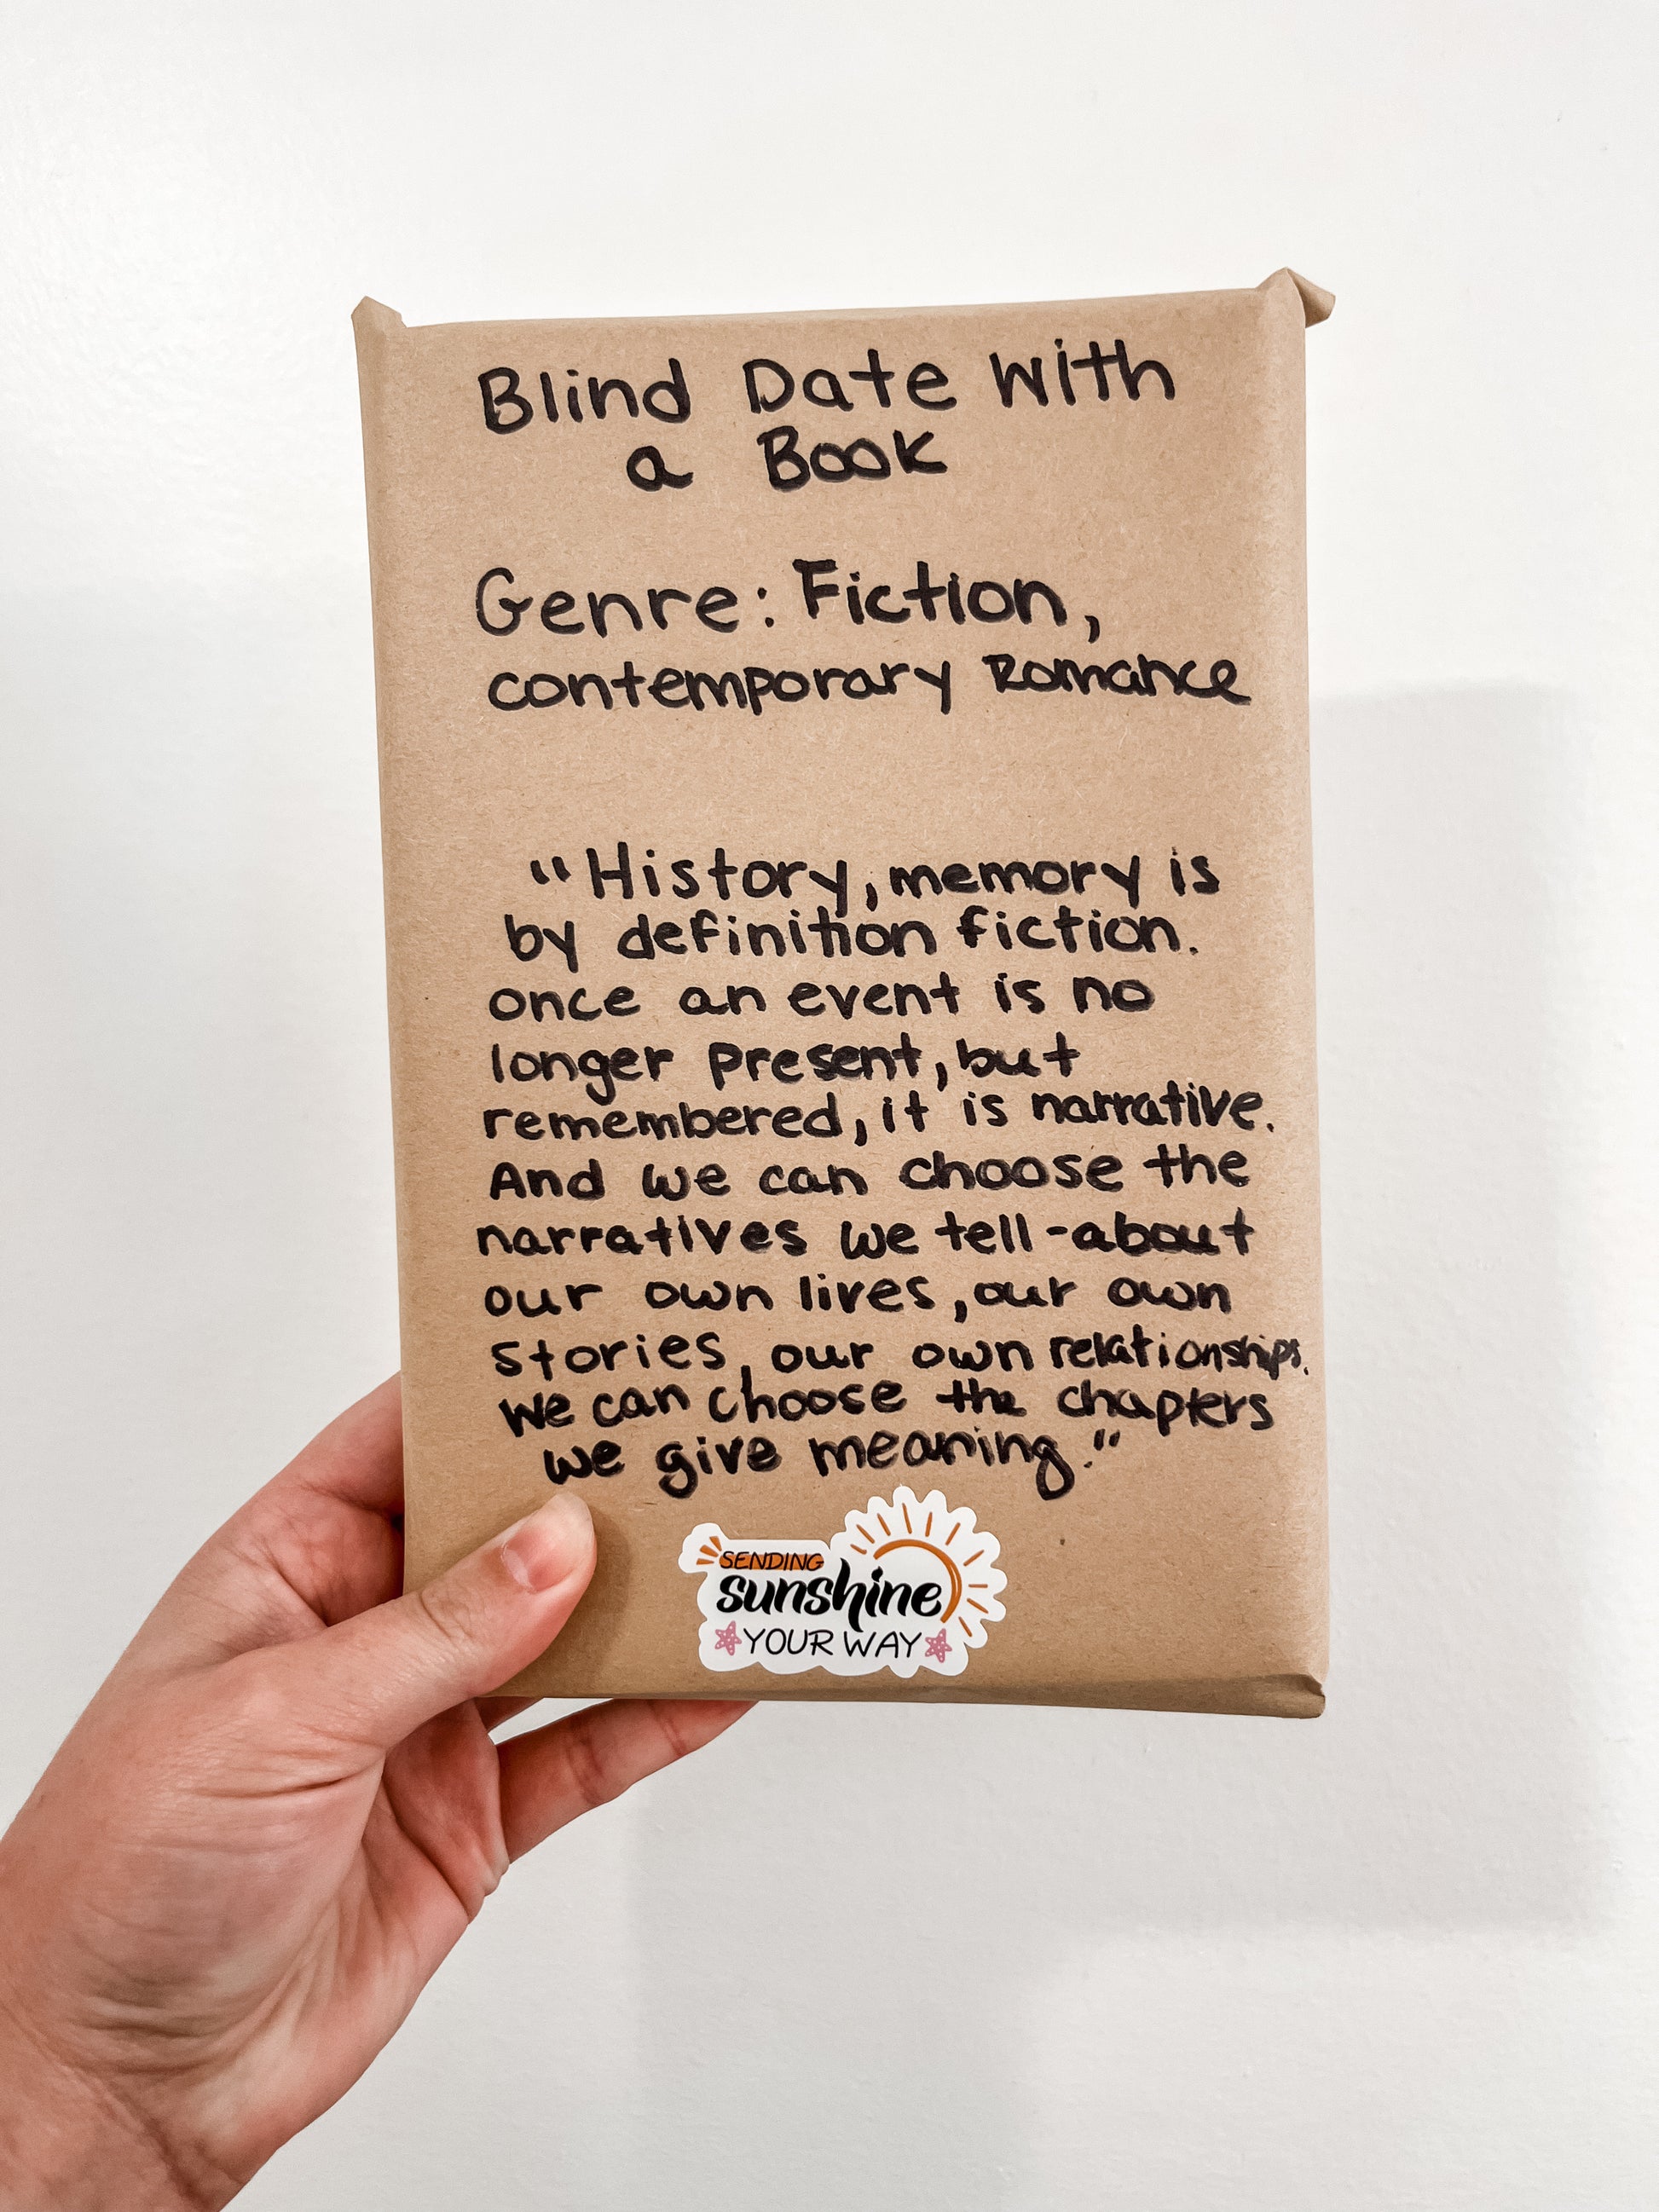 Blind Date With
a Book
Genre: Fiction,
contemporary Romance
"History, memory is
by definition fiction.
once an event is no
longer present, but
remembered, it is narrative.
And we can choose the
narratives we tell-about
our own lives, our own
stories, our own relationships.
We can choose the chapters
we give meaning."
SENDING
sunshine
YOUR WAY